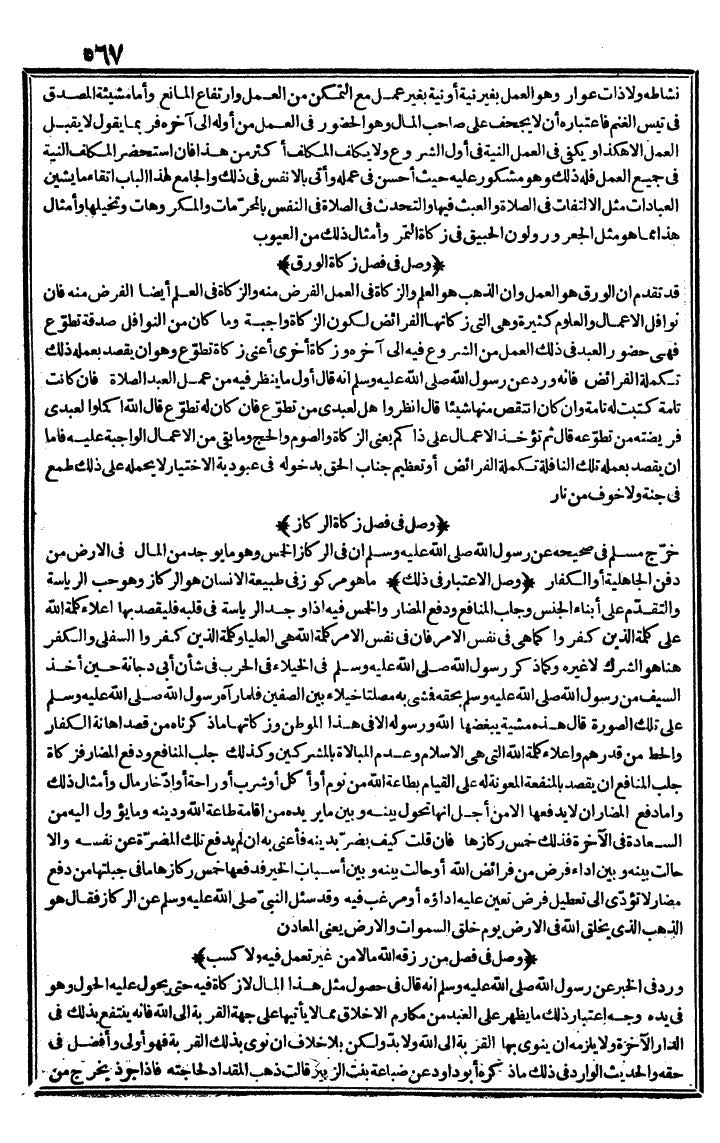 ٥٦٧
نشاطه ولاذات عوار وهو العمل بغير نية أو نية بغير عمل مع التمكن من العمل وارتفاع المانع وأما مشيئة المصدق
فى تيس الغنم فاعتباره أن لا يجحف على صاحب المال وهو الحضور فى العمل من أوله الى آخره فر بما يقول لا يقبل
العمل الاهكذا ويكفى فى العمل النية فى أول الشروع ولا يكلف المكلف أكثر من هذا فان استحضر المكلف النية
فى جميع العمل فله ذلك وهو مشكور عليه حيث أحسن فى عمله وأتى بالانفس فى ذلك والجامع لهذا الباب اتقاء ما يشين
العبادات مثل الالتفات فى الصلاة والعبث فيها والتحدث فى الصلاة فى النفس بالمحرمات والمكروهات وتخيلها وأمثال
هذا مما هو مثل الجعرور ولون الحبيق فى زكاة التمر وأمثال ذلك من العيوب
﴿وصل فى فصل زكاة الورق﴾
قد تقدم ان الورق هو العمل وان الذهب هو العلم والزكاة فى العمل الفرض منه والزكاة فى العلم أيضا الفرض منه فان
نوافل الاعمال والعلوم كثيرة وهى التى زكاتها الفرائض لكون الزكاة واجبة وما كان من النوافل صدقة تطوّع
فهى حضور العبد فى ذلك العمل من الشروع فيه الى آخره وزكاة أخرى أعنى زكاة تطوّع وهو ان يقصد بعمله ذلك
تكملة الفرائض فانه ورد عن رسول الله صلى الله عليه وسلم انه قال أول ما ينظر فيه من عمل العبد الصلاة فان كانت
تامة كتبت له تامة وان كان انتقص منها شيئا قال انظروا هل لعبدى من تطوّع فان كان له تطوّع قال الله اكملوا لعبدى
فريضته من تطوّعه قال ثم تؤخذ الاعمال على ذاكم يعنى الزكاة والصوم والحج وما بقى من الاعمال الواجبة عليه فاما
ان يقصد بعمله تلك النافلة تكملة الفرائض أو تعظيم جناب الحق بدخوله فى عبودية الاختيار لا يحمله على ذلك طمع
فى جنة ولا خوف من نار
﴿وصل فى فصل زكاة الركاز﴾
خرّج مسلم فى صحيحه عن رسول الله صلى الله عليه وسلم ان فى الركاز الخمس وهو ما يوجد من المال فى الارض من
دفن الجاهلية أو الكفار ﴿وصل الاعتبار فى ذلك﴾ ما هو مركوز فى طبيعة الانسان هو الركاز وهو حب الرياسة
والتقدّم على أبناء الجنس وجلب المنافع ودفع المضار والخمس فيه اذا وجد الرياسة فى قلبه فليقصد بها اعلاء كلمة الله
على كلمة الذين كفروا كما هى فى نفس الامر فان فى نفس الامر كلمة الله هى العليا وكلمة الذين كفروا السفلى والكفر
هنا هو الشرك لا غيره وكما ذكر رسول الله صلى الله عليه وسلم فى الخيلاء فى الحرب فى شأن أبى دجانة حين أخذ
السيف من رسول الله صلى الله عليه وسلم بحقه فشى به مصلتا خيلاء بين الصفين فلما رآه رسول الله صلى الله عليه وسلم
على تلك الصورة قال هذه مشية يبغضها الله ورسوله الا فى هذا الموطن وزكاتها ما ذكرناه من قصد اهانة الكفار
والحط من قدرهم واعلاء كلمة الله التى هى الاسلام وعدم المبالاة بالمشركين وكذلك جلب المنافع ودفع المضار فزكاة
جلب المنافع ان يقصد بالمنفعة المعونة له على القيام بطاعة الله من نوم أو أكل أو شرب أو راحة أو ادّخار مال وأمثال ذلك
واما دفع المضار ان لا يدفعها الا من أجل انها تحول بينه وبين ما يريده من اقامة طاعة الله ودينه وما يؤول اليه من
السعادة فى الآخرة فذلك خمس ركازها فان قلت كيف يضرّ بدينه فأعنى به ان لم يدفع تلك المضرّة عن نفسه والا
حالت بينه وبين اداء فرض من فرائض الله أو حالت بينه وبين أسباب الخير فدفعها خمس ركازها مافى جبلتها من دفع
مضار لا تؤدّى الى تعطيل فرض تعين عليه اداؤه أو مرغب فيه وقد سئل النبىّ صلى الله عليه وسلم عن الركاز فقال هو
الذهب الذى يخلق الله فى الارض يوم خلق السموات والارض يعنى المعادن
﴿وصل فى فصل من رزقه الله مالا من غير تعمل فيه ولا كسب﴾
ورد فى الخبر عن رسول الله صلى الله عليه وسلم انه قال فى حصول مثل هذا المال لا زكاة فيه حتى يحول عليه الحول وهو
فى يده وجه اعتبار ذلك ما يظهر على العبد من مكارم الاخلاق مما لا يأتيها على جهة القربة الى الله فانه ينتفع بذلك فى
الدار الآخرة ولا يلزمه ان ينوى بها القربة الى الله ولا بدّ ولكن بلا خلاف ان نوى بذلك القربة فهو أولى وأفضل فى
حقه والحديث الوارد فى ذلك ما ذكره أبو داود عن ضباعة بنت الزبير قالت ذهب المقداد لحاجته فاذا جرذ يخرج من